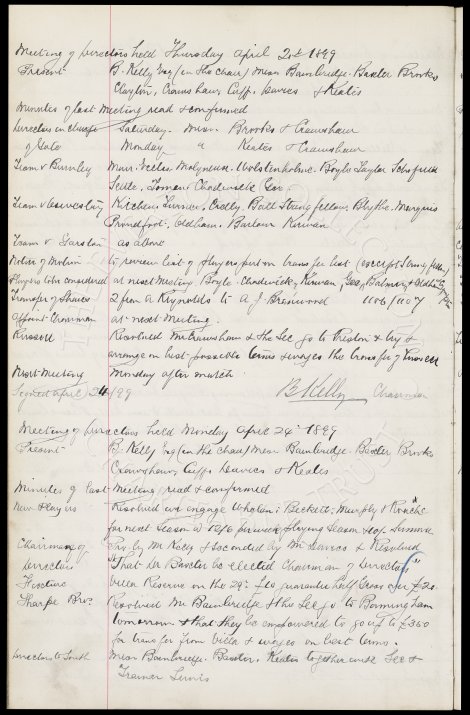 Meeting of Directors held Thursday April 20th 1899
Present B. Kelly Esq (in the chair) Messrs Bainbridge. Baxter Brooks
Clayton, Crawshaw, Cuff, Leavies & Keates
Minutes of last Meeting read & confirmed
Directors in charge Saturday. Messrs. Brooks & Crawshaw
of Gate Monday " Keates & Crawshaw
Team v Burnley Muir. Molyneux. Wolstenholme. Boyle Taylor Schofield
Settle. Toman. Chadwick Gee.
Team v Kitchen Turner. Crelly. Ball Stringfellow. Blythe. Marquis
Proudfoot. Oldham. Barlow Kirwan
Team v Garston as above
Notice of Motion to review list of players put on transfer list (except Stringfellow)
Players to be considered at next Meeting Boyle. Chadwick, Kirwan Gee, Balmer, & Oldham
Transfer of Shares 2 from A Reynolds to A J 1106/1107
Appoint Chairman at next Meeting.
Resolved Mr Crawshaw & the Sec go to Preston & try &
arrange on best possible terms & wages the transfer of
Next Meeting Monday after match
Signed April 24/99 B Kelly Chairman
Meeting of Directors held Monday April 24th 1899
Present B. Kelly Esq (in the chair) Messrs Bainbridge. Baxter Brooks
Crawshaw, Cuff Leavies & Keates
Minutes of last Meeting read & confirmed
New Players Resolved we engage Wheton; Beckett; Murphy & Roache
for next season @ per week playing season & Summer
Chairman of Pro. by Mr & Seconded by Mr Leavies & Resolved
Directors "That Dr Baxter be elected Chairman of Directors"
Fixture Villa Reserve on the 29th £10 guarantee half Gross over £20
Sharpe Bros. Resolved Mr Bainbridge & the Sec go to Birmingham
tomorrow & that they be empowered to go up to £350
for transfer from Villa & wages on best terms.
Directors to South Messrs Bainbridge. Baxter, Keates together with Sec &
Trainer Lewis